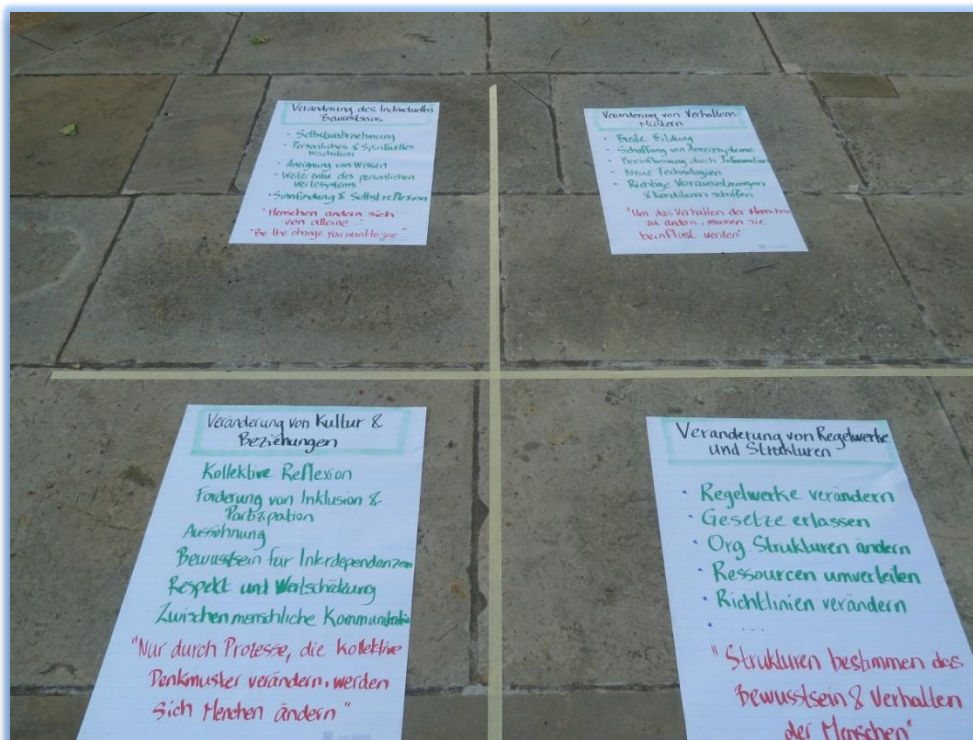 Veränderung des Individuellen
Bewusstseins
- Selbstwahrnehmung
- Persönliches & Spirituelles
Wachstum
- Aneignung von Wissen
- Weiter entw. des persönlichen
Wertesystems
- Sinnfindung & Selbstreflexion
"Menschen ändern sich
von alleine"
"Be the change you want to see"
Veränderung von Verhaltens-
Mustern
- Breite Bildung
- Schaffung von Anreizsysteme
- Beeinflussung durch Information
- Neue Technologien
- Richtige Voraussetzungen
& Konditionen schaffen
"Um das Verhalten der Menschen
zu ändern, müssen sie
beinflust werden"
Veränderung von Kultur &
Beziehungen
Kollektive Reflexion
Förderung von Inklusion &
Partizipation
Aussöhnung
Bewusstsein für Interdependenzen
Respekt und Wertschätzung
Zwischenmenschliche Kommunikation
"Nur durch Prozesse, die kollektive
Denkmuster verändern, werden
sich Menchen ändern"
Veränderung von Regelwerke
und Strukturen
· Regelwerke verändern
· Gesetze erlassen
· Org Strukturen ändern
· Ressourcen umverteilen
· Richtlinien verändern
· ....
"Strukturen bestimmen das
Bewusstsein & Verhalten
der Menschen"